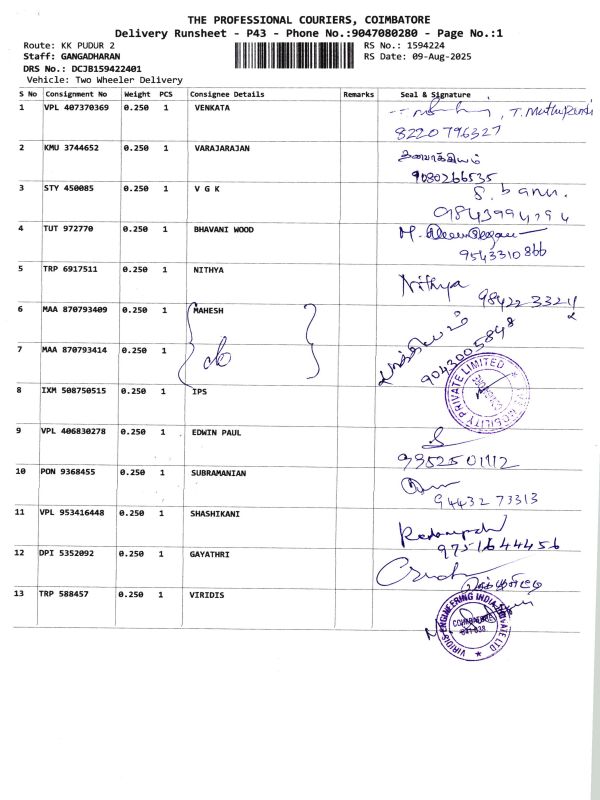 THE PROFESSIONAL COURIERS, COIMBATORE
Delivery Runsheet - P43 - Phone No.:9047080280 - Page No.:1
Route: KK PUDUR 2 RS No.: 1594224
Staff: GANGADHARAN RS Date: 09-Aug-2025
DRS No.: DCJB159422401
Vehicle: Two Wheeler Delivery
S No Consignment No Weight PCS Consignee Details Remarks Seal & Signature
1 VPL 407370369 0.250 1 VENKATA
8220796327
2 KMU 3744652 0.250 1 VARAJARAJAN
9080266535
3 STY 450085 0.250 1 V G K S. banu.
4 TUT 972770 0.250 1 BHAVANI WOOD
9543310866
5 TRP 6917511 0.250 1 NITHYA Nithya
6 MAA 870793409 0.250 1 MAHESH
9043005848
7 MAA 870793414 0.250 1
8 IXM 508750515 0.250 1 IPS
MOBILITY PRIVATE LIMITED
9 VPL 406830278 0.250 1 EDWIN PAUL
9952501112
10 PON 9368455 0.250 1 SUBRAMANIAN
9443273313
11 VPL 953416448 0.250 1 SHASHIKANI
9751644456
12 DPI 5352092 0.250 1 GAYATHRI
13 TRP 588457 0.250 1 VIRIDIS
VIRIDIS ENGINEERING INDIA PRIVATE LTD
COIMBATORE
641 038